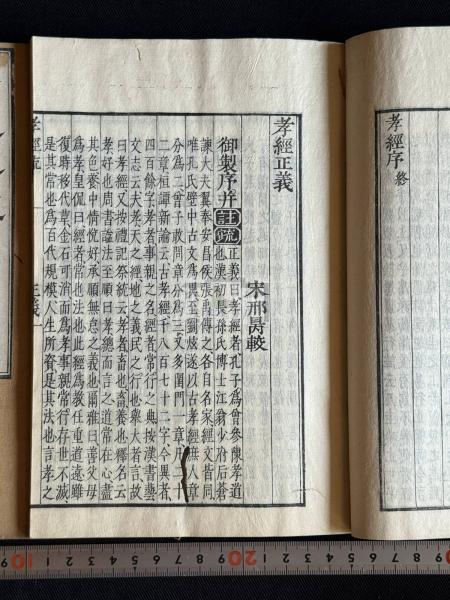 孝經序 終
孝經正義
宋邢昺較
御製序并註疏正義曰孝經者孔子爲曾參陳孝道
也漢初長孫氏博士江翁少府后蒼
諫大夫翼奉安昌侯張禹傳之各自名家經文皆同
唯孔氏壁中古文爲異至劉炫遂以古孝經庶人章
分爲二曾子敢問章分爲三又多閨門一章凡二十
二章桓譚新論云古孝經千八百七十二字今異者
四百餘字孝者事親之名經者常行之典按漢書藝
文志云夫孝天之經地之義民之行也舉大者言故
曰孝經又按禮記祭統云孝者畜也畜養也釋名云
孝好也周書諡法至順曰孝總而言之道常在心盡
其色養中情悅好承順無怠之義也爾雅曰善父母
爲孝皇侃曰經者常也法也此經爲教任重道遠雖
復時移代革金石可消而爲孝事親常行存世不滅
是其常也爲百代規模人生所資是其法也言孝之
孝經疏
正義一
10
20